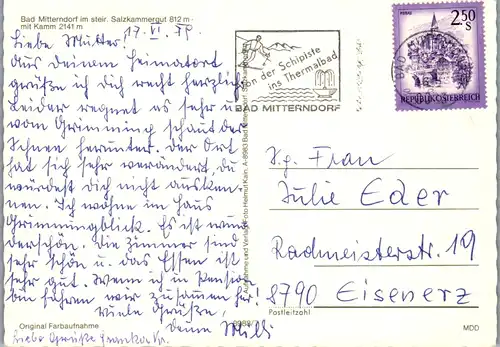 Bad Mitterndorf im steir. Salzkammergut 812 m -
mit Kamm 2141 m
17. VI. 78.
Liebe Mutter!
Aus deinem Heimatort
grüße ich dich recht herzlich.
Leider regnet es sehr u.
vom Grimming schaut der
Schnee herunter. Der Ort
hat sich sehr verändert, du
würdest dich nicht ausken-
nen. Ich wohne im Haus
Grimmingblick. Es ist wun-
derschön. Die Zimmer sind
sehr schön u. das Essen ist
sehr gut. Wenn ich in Pension
bin fahren wir zusammen her!
Viele Grüße,
deine Milli
Liebe Grüße
Original Farbaufnahme
Aufnahme und Verlag: Foto Helmut Kain, A-8983 Bad Mitterndorf
von der Schipiste
ins Thermalbad
BAD MITTERNDORF
2.50
S
REPUBLIK ÖSTERREICH
Hg. Frau
Julie Eder
Radmeisterstr. 19
8790 Eisenerz
Postleitzahl
MDD